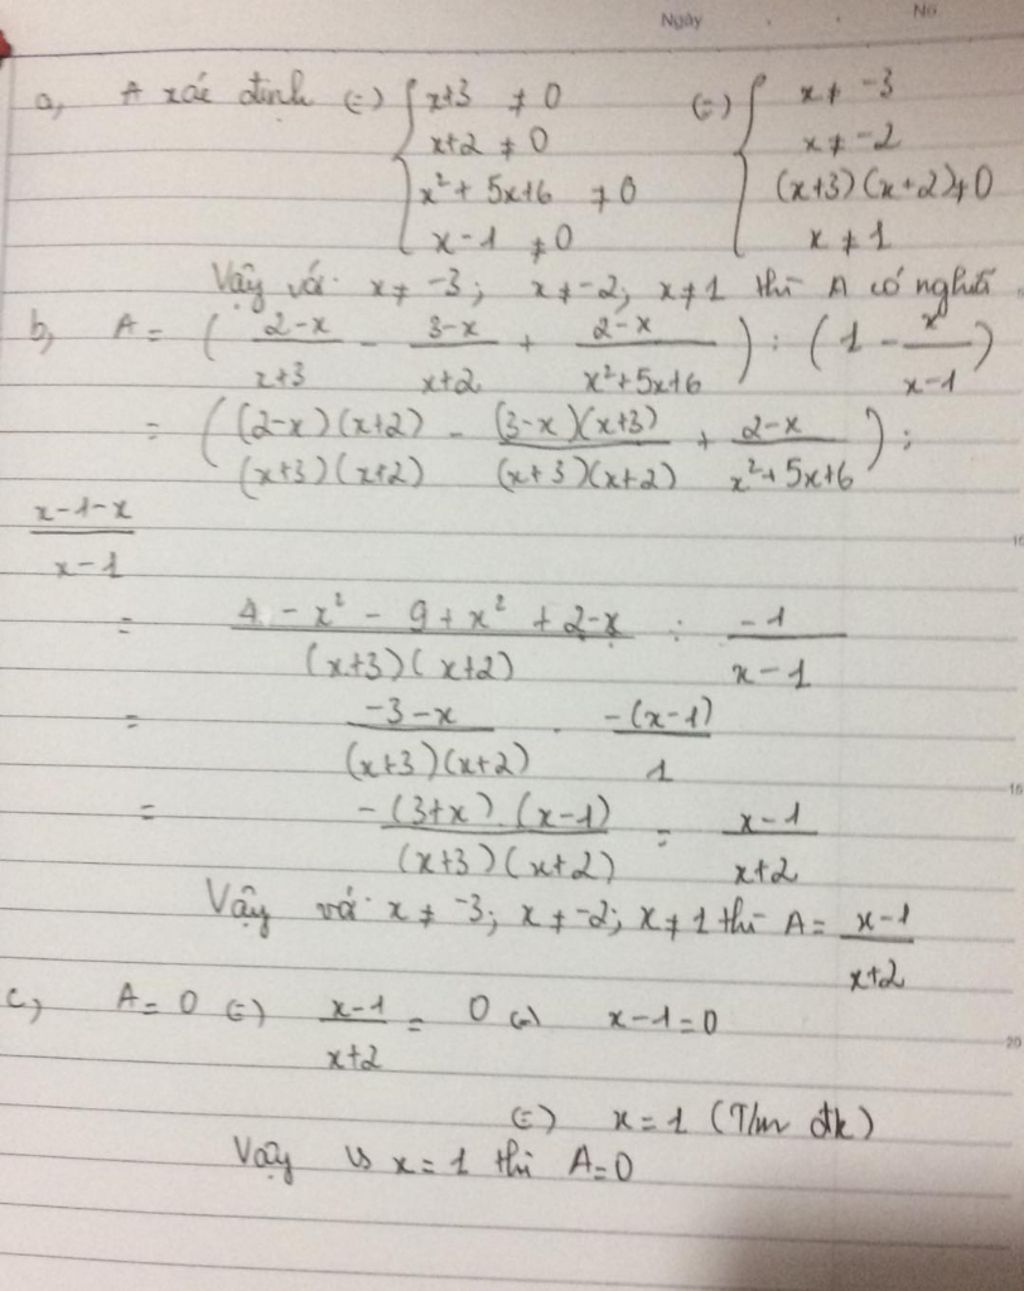 Ngày . . No
a, A xác định (=) { x+3 ≠ 0 (=) { x ≠ -3
x+2 ≠ 0 x ≠ -2
x² + 5x+6 ≠ 0 (x+3)(x+2) ≠ 0
x - 1 ≠ 0 x ≠ 1
Vậy với x ≠ -3; x ≠ -2; x ≠ 1 thì A có nghĩa
b, A = ( \frac{2-x}{x+3} - \frac{3-x}{x+2} + \frac{2-x}{x²+5x+6} ) : ( 1 - \frac{x}{x-1} )
= ( \frac{(2-x)(x+2)}{(x+3)(x+2)} - \frac{(3-x)(x+3)}{(x+3)(x+2)} + \frac{2-x}{x²+5x+6} ) :
\frac{x-1-x}{x-1}
10
= \frac{4 - x² - 9 + x² + 2-x}{(x+3)(x+2)} : \frac{-1}{x-1}
= \frac{-3-x}{(x+3)(x+2)} . \frac{-(x-1)}{1}
15
= \frac{-(3+x).(x-1)}{(x+3)(x+2)} = \frac{x-1}{x+2}
Vậy với x ≠ -3; x ≠ -2; x ≠ 1 thì A = \frac{x-1}{x+2}
c, A = 0 (=) \frac{x-1}{x+2} = 0 (=) x-1=0
20
(=) x = 1 (T/m đk)
Vậy x = 1 thì A=0